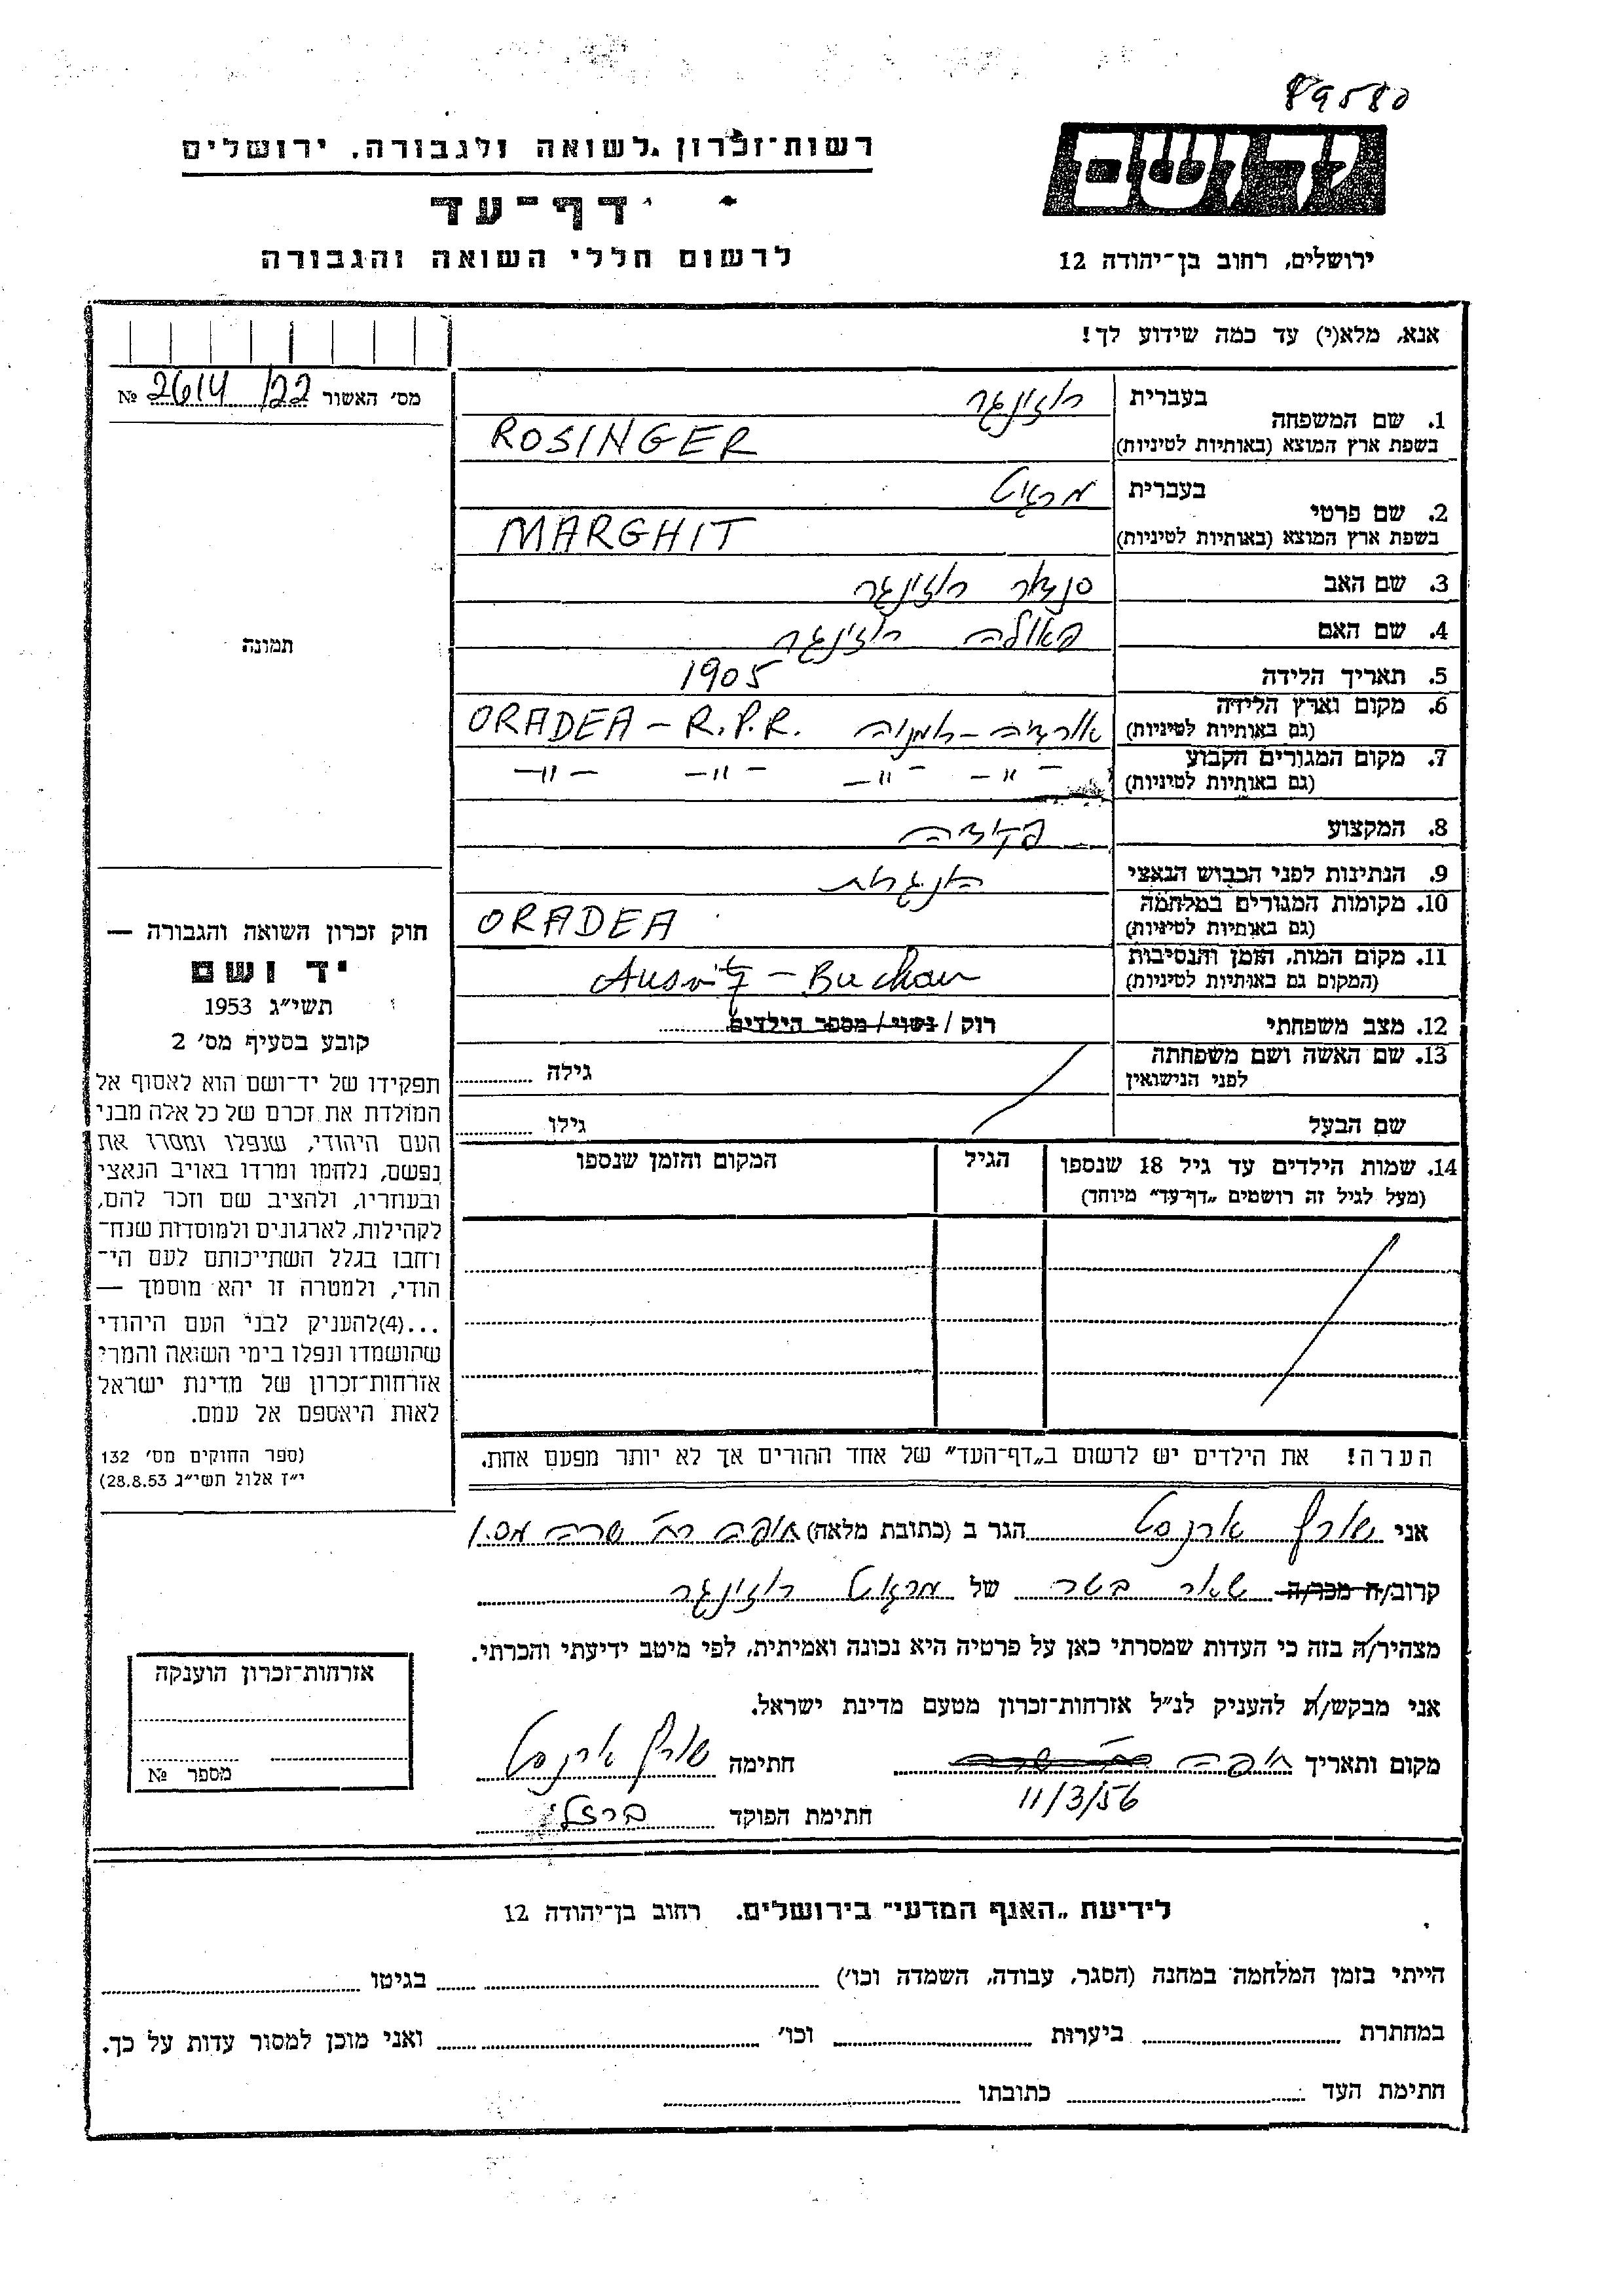 89580
יד ושם
ירושלים, רחוב בן־יהודה 12
רשות־זכרון לשואה ולגבורה, ירושלים
דף־עד
לרשום חללי השואה והגבורה
אנא, מלא(י) עד כמה שידוע לך!
מס׳ האשור 2614/22 №
תמונה
1. שם המשפחה
בעברית רוזינגר
בשפת ארץ המוצא (באותיות לטיניות) ROSINGER
2. שם פרטי
בעברית מרגיט
בשפת ארץ המוצא (באותיות לטיניות) MARGHIT
3. שם האב סנדור רוזינגר
4. שם האם פאולה רוזינגר
5. תאריך הלידה 1905
6. מקום וארץ הלידה
(גם באותיות לטיניות) אורדיה – רומניה ORADEA – R.P.R.
7. מקום המגורים הקבוע
(גם באותיות לטיניות) –"– –"– –"– –"–
8. המקצוע פקידה
9. הנתינות לפני הכבוש הנאצי הונגרית
10. מקומות המגורים במלחמה
(גם באותיות לטיניות) ORADEA
11. מקום המות, הזמן והנסיבות
(המקום גם באותיות לטיניות) Ausviţ – Buchau
12. מצב משפחתי רוק / נשוי / מספר הילדים
13. שם האשה ושם משפחתה
לפני הנישואין גילה
שם הבעל גילו
14. שמות הילדים עד גיל 18 שנספו הגיל המקום והזמן שנספו
(מעל לגיל זה רושמים „דף־עד״ מיוחד)
הערה! את הילדים יש לרשום ב„דף־העד״ של אחד ההורים אך לא יותר מפעם אחת.
חוק זכרון השואה והגבורה —
יד ושם
תשי״ג 1953
קובע בסעיף מס׳ 2
תפקידו של יד־ושם הוא לאסוף אל
המולדת את זכרם של כל אלה מבני
העם היהודי, שנפלו ומסרו את
נפשם, נלחמו ומרדו באויב הנאצי
ובעוזריו, ולהציב שם וזכר להם,
לקהילות, לארגונים ולמוסדות שנח־
רחבו בגלל השתייכותם לעם הי־
הודי, ולמטרה זו יהא מוסמך —
...(4)להעניק לבני העם היהודי
שהושמדו ונפלו בימי השואה והמרי
אזרחות־זכרון של מדינת ישראל
לאות היאספם אל עמם.
(ספר החוקים מס׳ 132
י״ז אלול תשי״ג 28.8.53)
אני שורף ארנסט הגר ב (כתובת מלאה) חיפה רח׳ שרה מס. 1
קרוב/ה מכר/ה שאר בשר של מרגיט רוזינגר
מצהיר/ה בזה כי העדות שמסרתי כאן על פרטיה היא נכונה ואמיתית, לפי מיטב ידיעתי והכרתי.
אני מבקש/ת להעניק לנ״ל אזרחות־זכרון מטעם מדינת ישראל.
מקום ותאריך חיפה רח׳ שרה חתימה שורף ארנסט
11/3/56
חתימת הפוקד ברזלי
אזרחות־זכרון הוענקה
מספר №
לידיעת „האגף המדעי״ בירושלים. רחוב בן־יהודה 12
הייתי בזמן המלחמה במחנה (הסגר, עבודה, השמדה וכו׳) בגיטו
במחתרת ביערות וכו׳ ואני מוכן למסור עדות על כך.
חתימת העד כתובתו